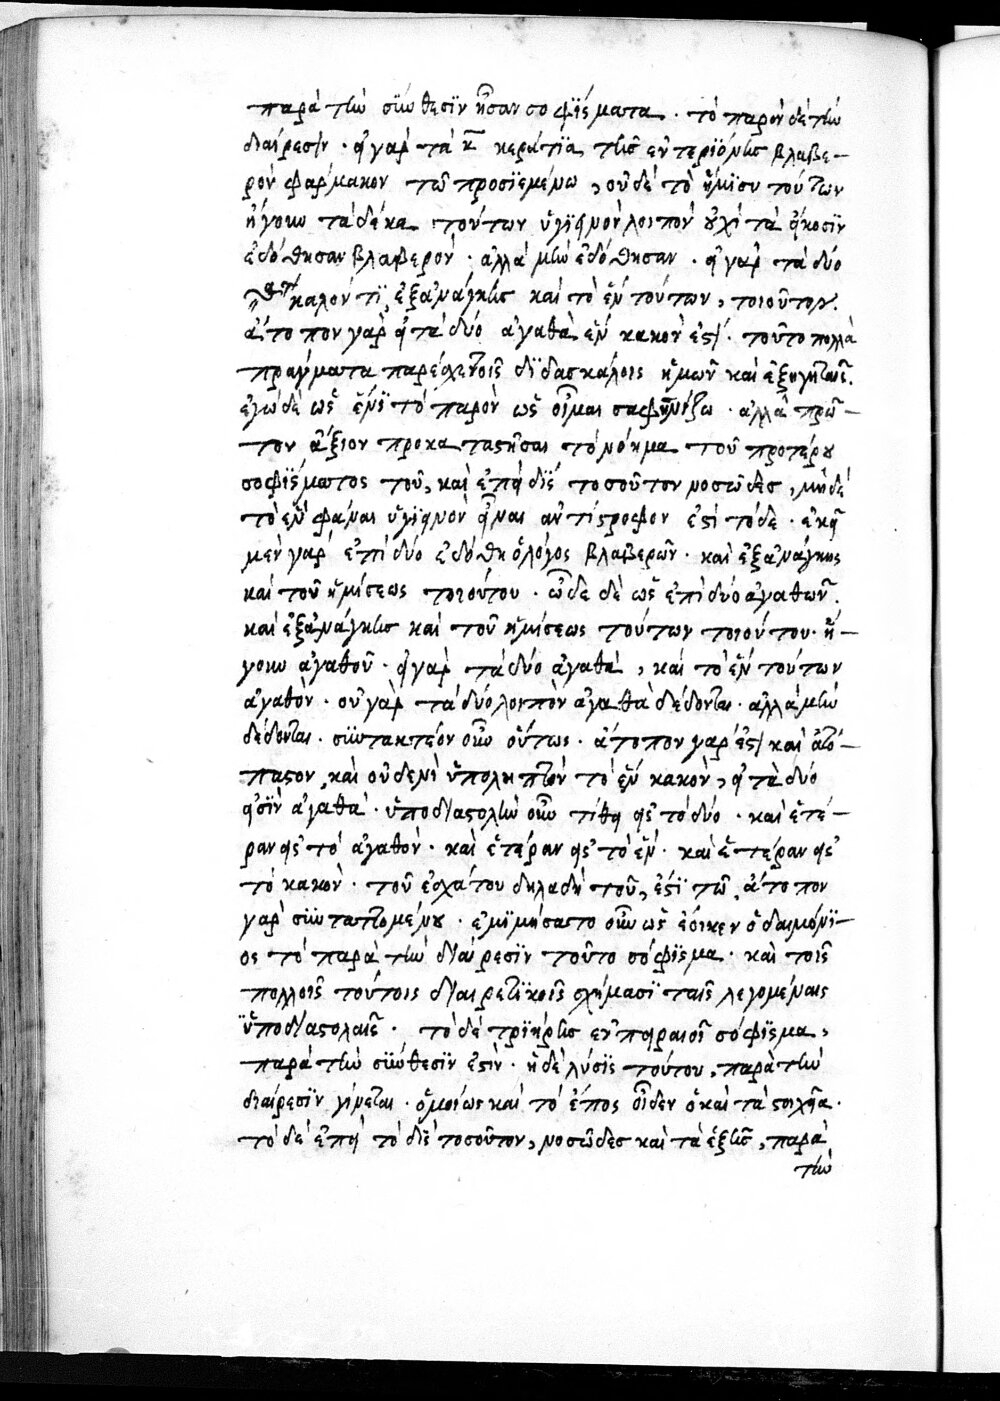 παρὰ τὴν σύνθεσϊν ἦσαν σοφΐσματα. τὸ παρὸν δὲ τὴν
διαίρεσιν. εἰ γὰρ τὰ κ κεράτϊα τῆς ἐντεριόνης βλαβε-
ρὸν φάρμακον τῶ προσϊεμένω, οὐδὲ τὸ ἥμϊσυ τούτων
ἤγουν τὰ δέκα τούτων ὑγϊεινὸν λοιπὸν οὐχὶ τὰ εἴκοσϊν
ἐδόθησαν βλαβερόν. ἀλλὰ μὴν ἐδόθησαν. εἰ γὰρ τὰ δύο
καλόν τϊ, ἐξανάγκης καὶ τὸ ἓν τούτων, τοιοῦτον.
ἄτοπον γὰρ εἰ τὰ δύο ἀγαθὰ ἓν κακὸν ἐστί. τοῦτο πολλὰ
πράγματα παρέσχε τοῖς δϊδασκάλοις ἡμῶν καὶ ἐξηγηταῖς.
ἐγὼ δὲ ὡς ἔνϊ τὸ παρὸν ὡς οἶμαι σαφηνίζω. ἀλλὰ πρῶ-
τον ἄξιον προκαταστῆσαι τὸ νόημα τοῦ προτέρου
σοφΐσματος τοῦ, καὶ ἐπεὶ δϊς τοσοῦτον νοσῶδες, μηδὲ
τὸ ἓν φάναι ὑγϊεινὸν εἶναι ἀντίστροφον ἐστὶ τόδε. ἐκεῖ
μὲν γὰρ ἐπὶ δύο ἐδόθη ὁ λόγος βλαβερῶν. καὶ ἐξανάγκης
καὶ τοῦ ἡμίσεως τοιούτου. ὧδε δὲ ὡς ἐπὶ δύο ἀγαθῶν.
καὶ ἐξανάγκης καὶ τοῦ ἡμίσεως τούτων τοιούτου. ἤ-
γουν ἀγαθοῦ. εἰ γὰρ τὰ δύο ἀγαθὰ, καὶ τὸ ἓν τούτων
ἀγαθόν. οὐ γὰρ τὰ δύο λοιπὸν ἀγαθὰ δέδονται. ἀλλὰ μὴν
δέδονται. συντακτέον οὖν οὕτως. ἄτοπον γάρ ἐστὶ καὶ ἀτό-
παστον καὶ οὐδενὶ ὑποληπτὸν τὸ ἓν κακὸν, εἰ τὰ δύο
εἰσϊν ἀγαθά. ὑποδιαστολὴν οὖν τίθει εἰς τὸ δύο. καὶ ἑτέ-
ραν εἰς τὸ ἀγαθόν. καὶ ἑτέραν εἰς τὸ ἓν. καὶ ἑτέραν εἰς
τὸ κακόν. τοῦ ἐσχάτου δηλαδὴ τοῦ, ἐστϊ τῶ, ἄτοπον
γὰρ συνταττομένου. ἐμϊμήσατο οὖν ὡς ἔοικεν ὁ δαιμόνϊ-
ος τὸ παρὰ τὴν διαίρεσϊν τοῦτο σόφϊσμα. καὶ τοῖς
πολλοῖς τούτοις διαιρετϊκοῖς σχήμασϊ ταῖς λεγομέναις
ὑποδιαστολαῖς. τὸ δὲ τριήρης ἐν πειραιοῖ σόφϊσμα,
παρὰ τὴν σύνθεσϊν ἐστϊν. ἡ δὲ λύσϊς τούτου, παρὰ τὴν
διαίρεσϊν γίνεται. ὁμοίως καὶ τὸ ἔπος οἶδεν ὁ καὶ τὰ στοιχεῖα.
τὸ δὲ ἐπεὶ τὸ δὶς τοσοῦτον, νοσῶδες καὶ τὰ ἑξῆς, παρὰ
τὴν